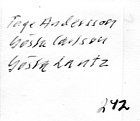 Tage Andersson
Gösta Carlson
Gösta Lantz
242